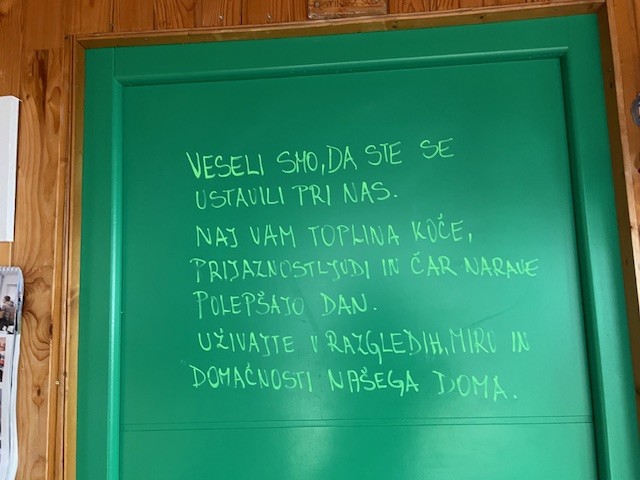 VESELI SMO, DA STE SE
USTAVILI PRI NAS.
NAJ VAM TOPLINA KOČE,
PRIJAZNOST LJUDI IN ČAR NARAVE
POLEPŠAJO DAN.
UŽIVAJTE V RAZGLEDIH, MIRU IN
DOMAČNOSTI NAŠEGA DOMA.